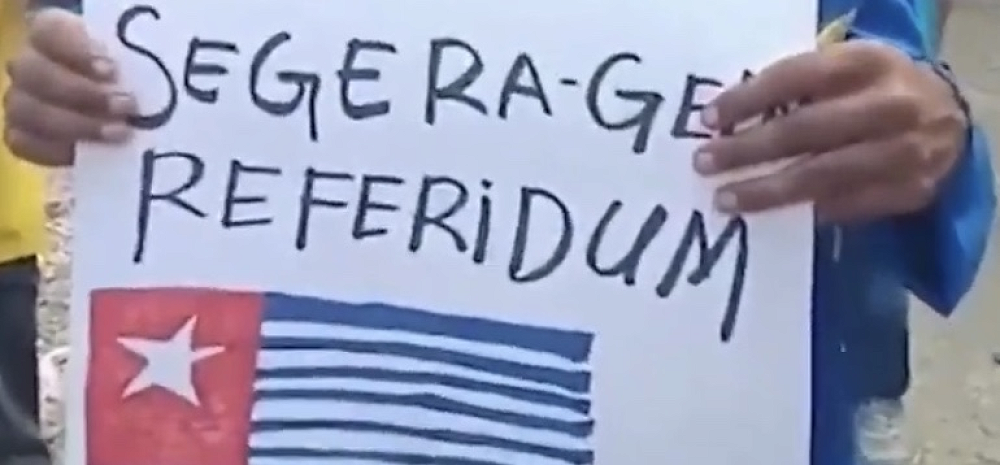 SEGERA-GE
REFERiDUM